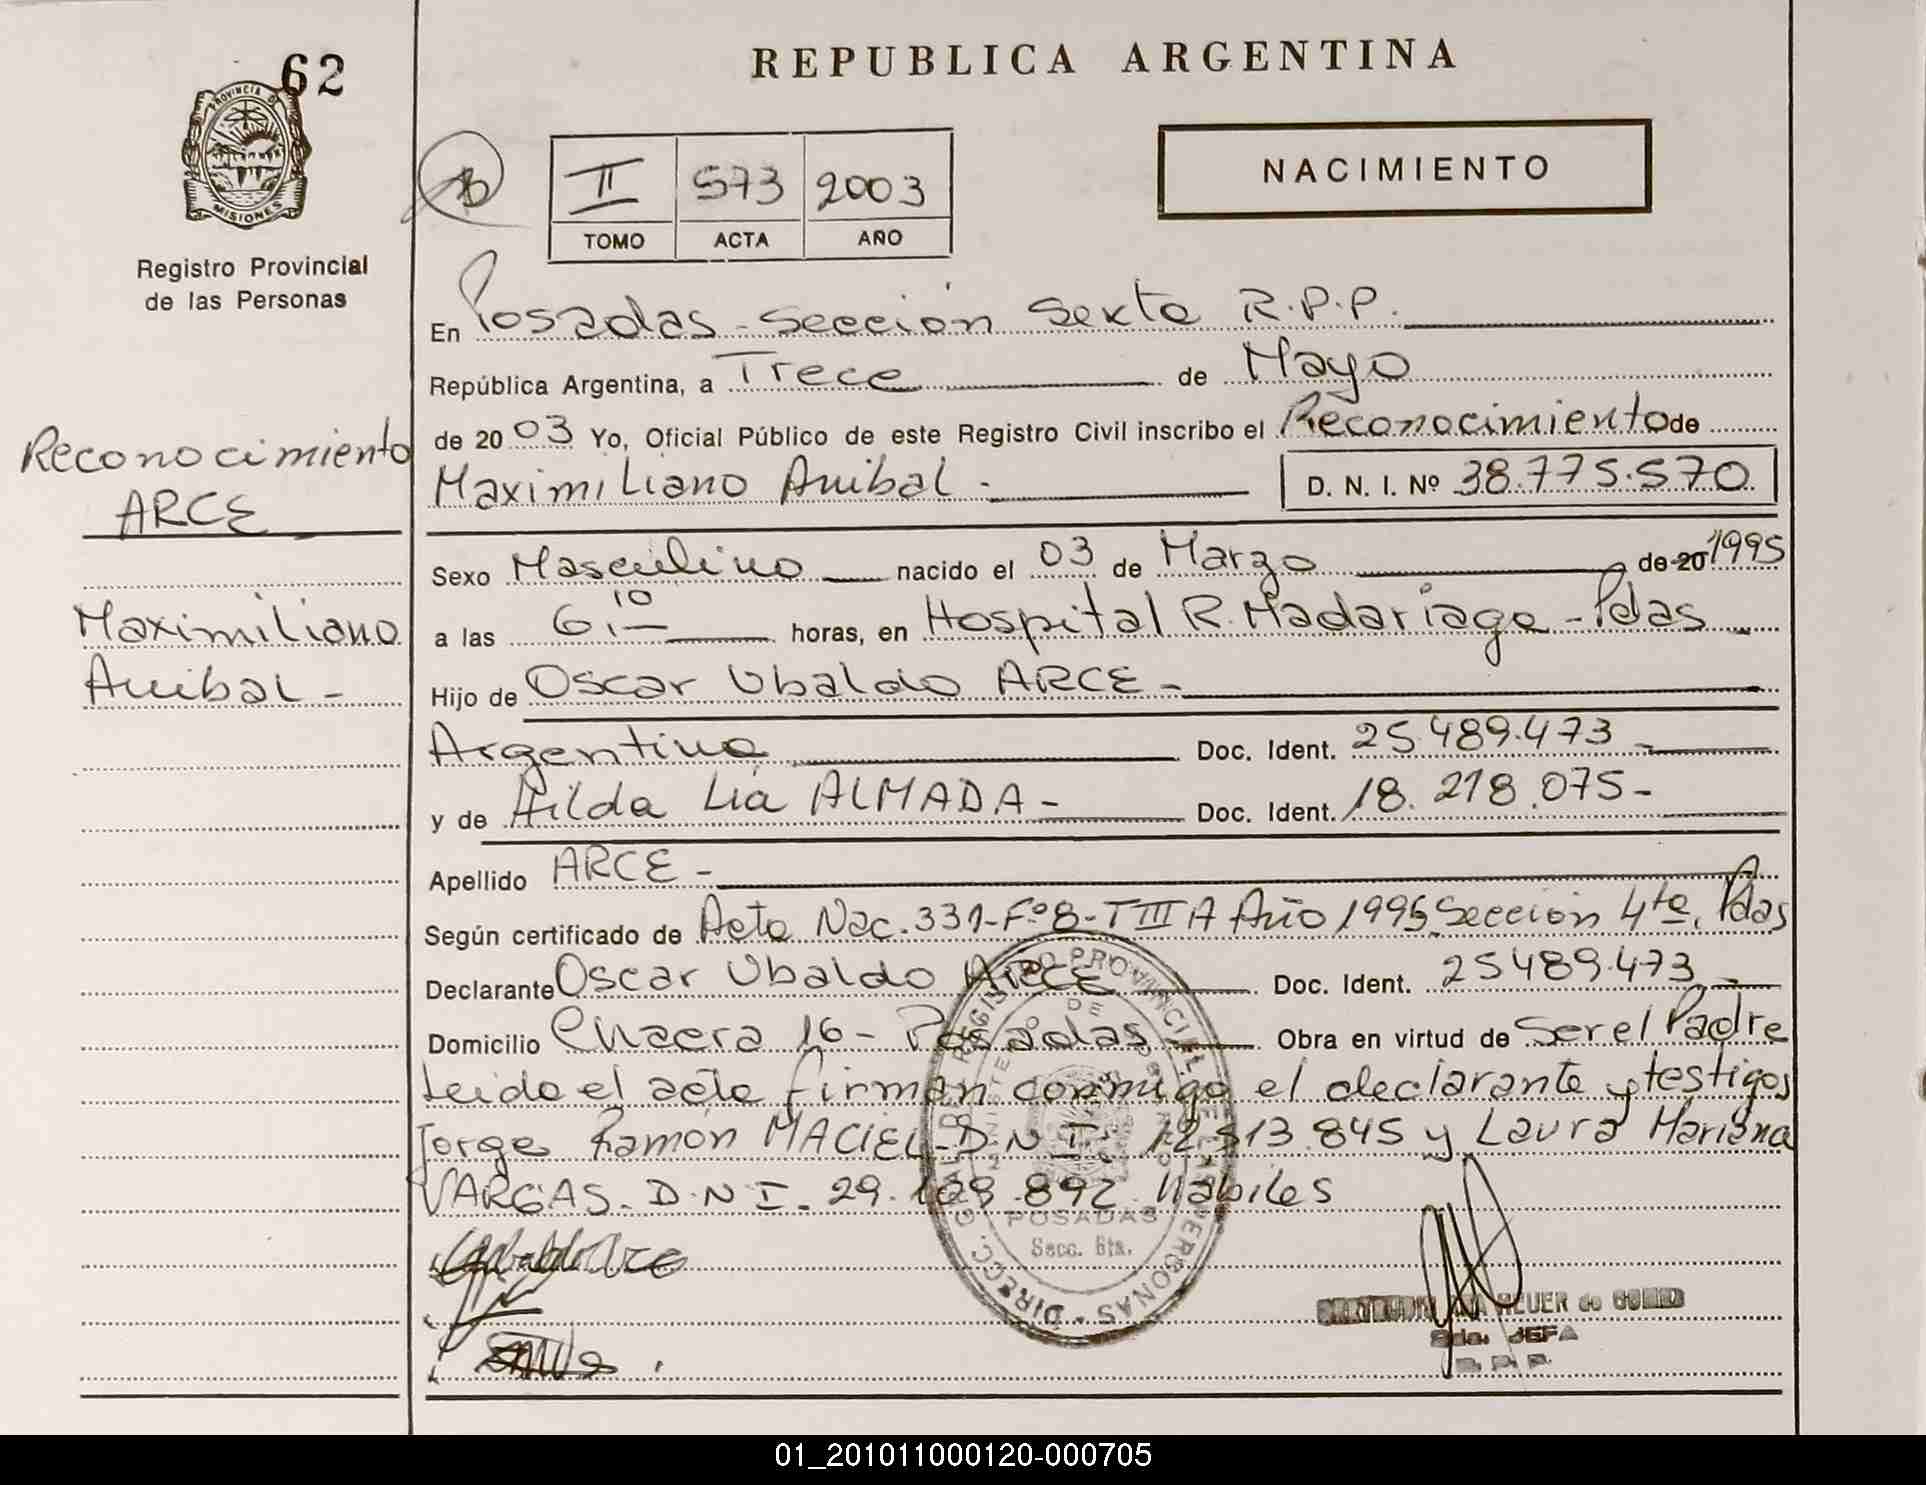 62
PROVINCIA DE
MISIONES
Registro Provincial
de las Personas
Reconocimiento
ARCE
Maximiliano
Anibal -
REPUBLICA ARGENTINA
NACIMIENTO
II 573 2003
TOMO ACTA AÑO
En Posadas - Sección Sexta R.P.P.
República Argentina, a Trece de Mayo
de 20 03 Yo, Oficial Público de este Registro Civil inscribo el Reconocimiento de
Maximiliano Anibal - D. N. I. Nº 38.775.570
Sexo Masculino nacido el 03 de Marzo de 20 1995
a las 6,10 horas, en Hospital R. Madariaga - Pdas
Hijo de Oscar Ubaldo ARCE -
Argentino Doc. Ident. 25.489.473 -
y de Hilda Lia ALMADA - Doc. Ident. 18.218.075 -
Apellido ARCE -
Según certificado de Acta Nac. 331 - Fº 8 - T III A Año 1995 Sección 4ta. Pdas
Declarante Oscar Ubaldo ARCE Doc. Ident. 25489.473 -
Domicilio Chacra 16 - Posadas Obra en virtud de Ser el Padre
Leido el acta firman conmigo el declarante y testigos
Jorge Ramón MACIEL - D.N.I. 12.513.845 y Laura Mariana
VARGAS. D.N.I. 29. 892. Habiles
POSADAS
Secc. 6ta.
DE LAS PERSONAS
JEFA
01_201011000120-000705